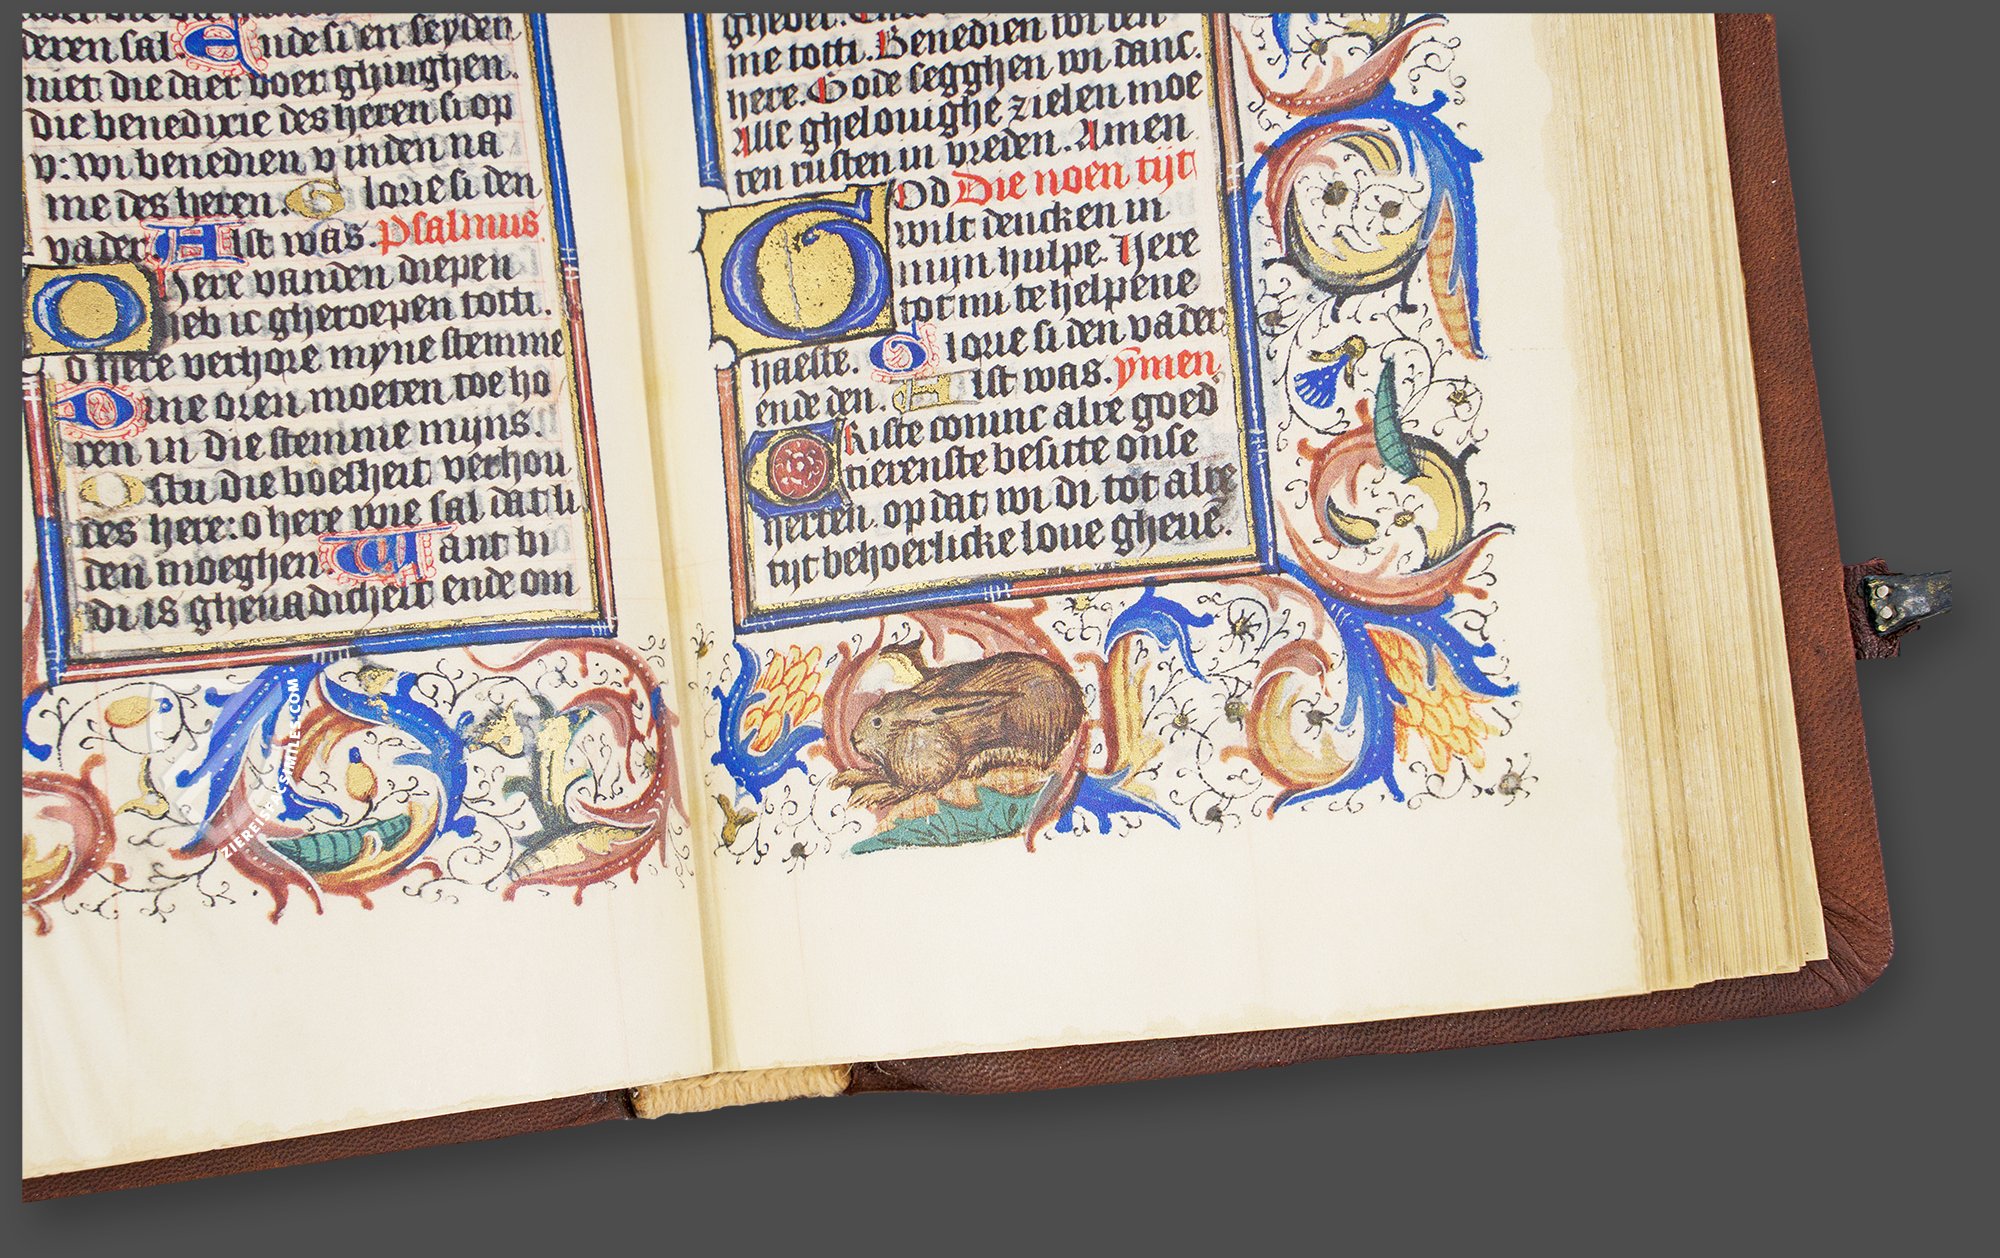 deren sal Ende si en seyden
niet die daer voer ghinghen.
die benedixie des heren si op
v: wi benedien v inden na
me des heren. Glorie si den
vader Alst was. psalmus
O here vanden diepen
heb ic gheroepen totti.
o here verhore myne stemme
Dine oren moeten toe ho
ren in die stemme mijns.
Ostu die boesheit verhou
des here: o here wie sal dat li
den moeghen Want bi
di is ghenadicheit ende om
me totti. Benedien wi den
here. Gode segghen wi danc.
Alle ghelouighe zielen moe
ten rusten in vreden. Amen
GOd Die noen tijt
wilt dencken in
mijn hulpe. Here
tot mi te helpene
haeste. Glorie si den vader
ende den. Alst was. ymen
Criste coninc alre goed
tierenste besitte onse
herten. op dat wi di tot alre
tijt behoerlicke loue gheuē.
ZIEREIS FACSIMILES.COM